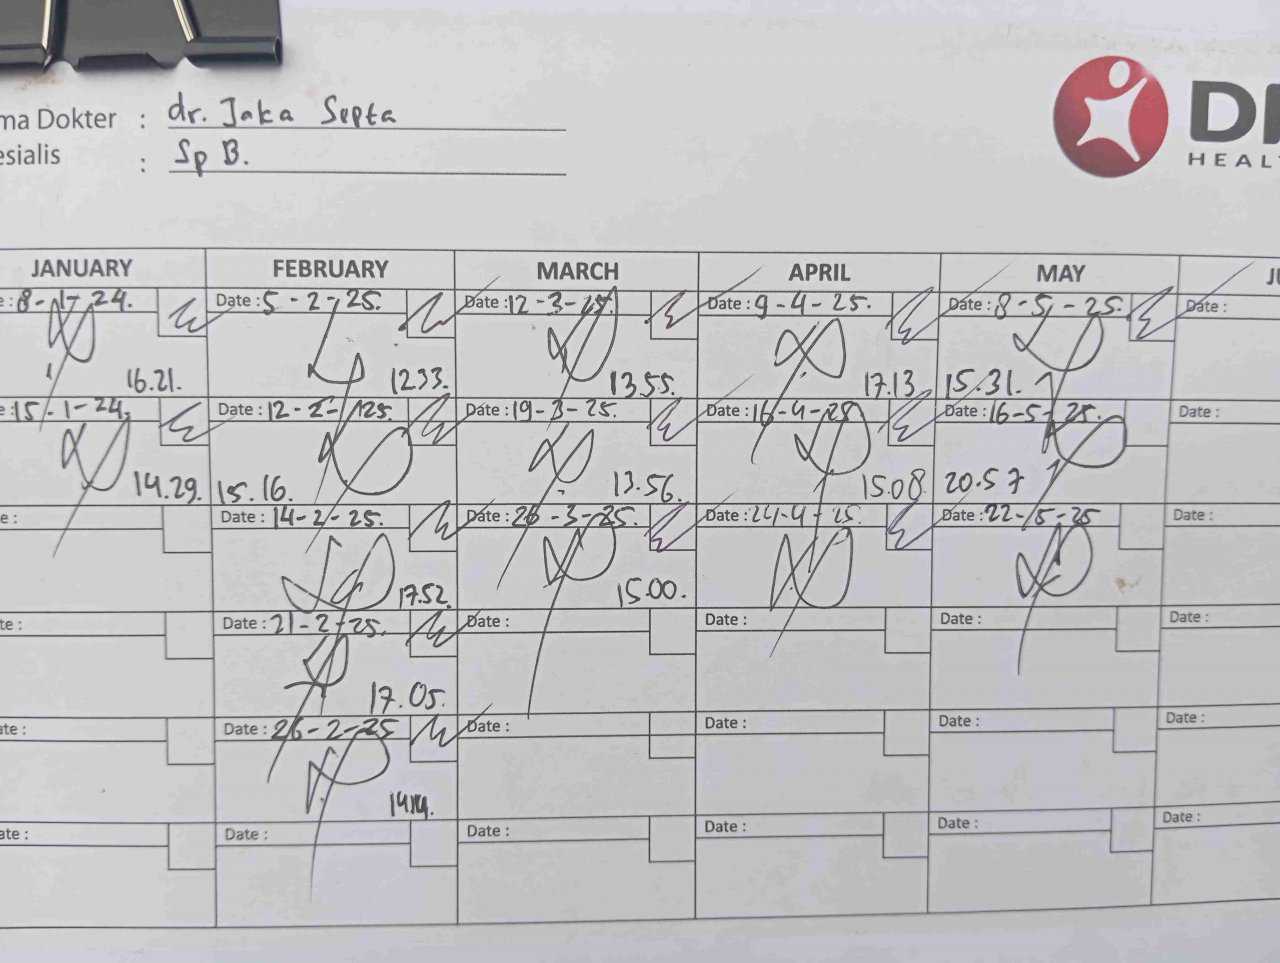 ma Dokter : dr. Jaka Septa
esialis : Sp B.
DK
HEAL
JANUARY FEBRUARY MARCH APRIL MAY JU
e : 8-1-24. Date : 5-2-25. Date : 12-3-25. Date : 9-4-25. Date : 8-5-25. Date :
16.21. 1233. 13.55. 17.13 15.31.
e : 15-1-24. Date : 12-2-25. Date : 19-3-25. Date : 16-4-25 Date : 16-5-25. Date :
14.29. 15.16. 13.56. 15.08 20.57
e : Date : 14-2-25. Date : 26-3-25. Date : 24-4-25. Date : 22-5-25 Date :
17.52. 15.00.
te : Date : 21-2-25. Date : Date : Date : Date :
17.05.
ate : Date : 26-2-25 Date : Date : Date : Date :
1414.
ate : Date : Date : Date : Date : Date :